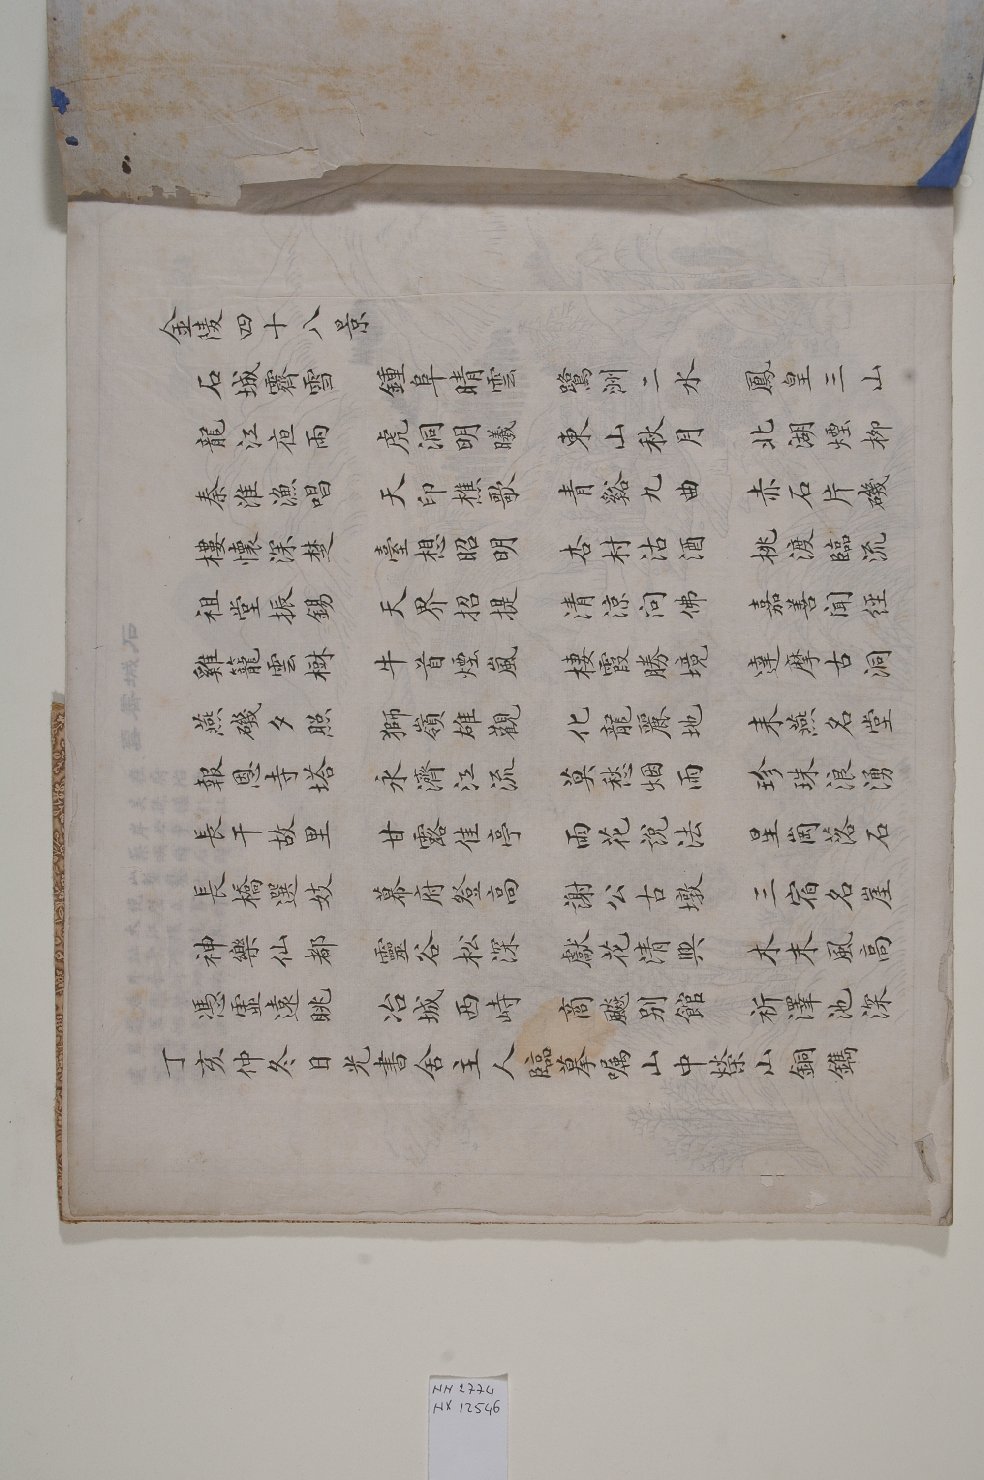 金陵四十八景
石城霽雪 鍾阜晴雲 鷺洲二水 鳳皇三山
龍江夜雨 虎洞明曦 東山秋月 北湖煙柳
秦淮漁唱 天印樵歌 青谿九曲 赤石片磯
樓懷深楚 臺想昭明 杏村沽酒 桃渡臨流
祖堂振錫 天界招提 清涼问佛 嘉善闻经
雞籠雲樹 牛首煙嵐 棲霞勝境 達摩古洞
燕磯夕照 獅嶺雄觀 化龍麗地 来燕名堂
報恩寺塔 永濟江流 莫愁烟雨 珍珠浪湧
長干故里 甘露佳亭 雨花說法 星崗落石
長橋選妓 幕府登高 謝公古墩 三宿名崖
神樂仙都 靈谷松深 獻花清興 木末風高
憑虛遠眺 冶城西峙 商飈别館 祈澤池深
丁亥仲冬日光書舍主人臨摹嘱山中榮山銅鐫
NH 2774
HX 12546